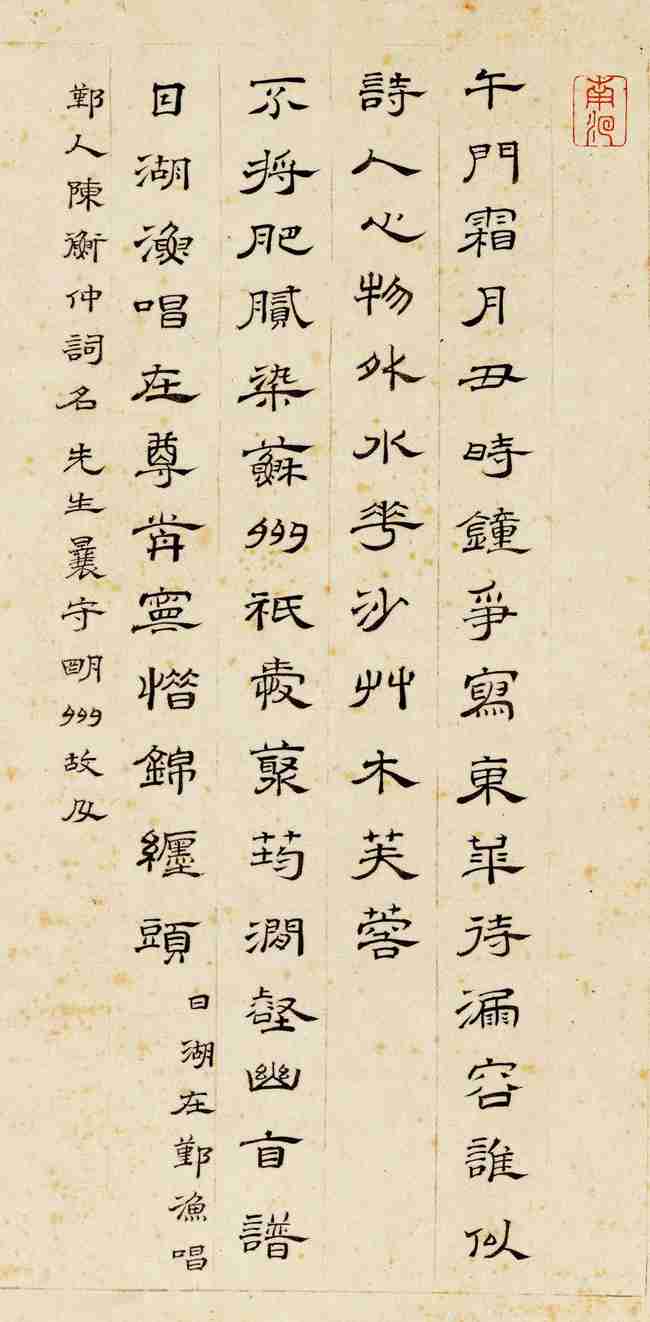 午門霜月丑時鐘爭寫東華待漏容誰似
詩人心物外水華沙艸木芙蓉
不將肥膩染蘇州祇愛藂筠澗壑幽首譜
日湖漁唱在尊歬寧惜錦纏頭 日湖在鄞漁唱
鄞人陳衡仲詞名 先生曩守明州故及